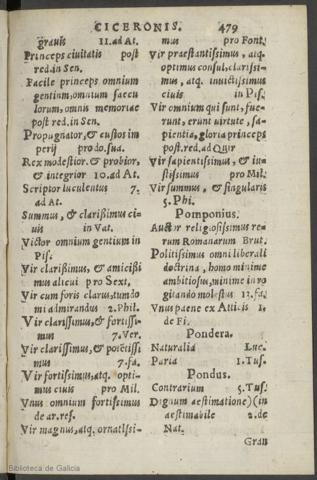 CICERONIS. 479
grauis 11.ad At.
Princeps ciuitatis post
red.in Sen.
Facile princeps omnium
gentium, omnium saecu
lorum, omnis memoriae
post red.in Sen.
Propugnator, & custos im
perij pro do.sua.
Rex modestior. & probior,
& integrior 10.ad At.
Scriptor luculentus 7.
ad At.
Summus, & clarißimus ci-
uis in Vat.
Victor omnium gentium in
Pis.
Vir clarißimus, & amicißi
mus alicui pro Sext.
Vir cum foris clarus, tum do
mi admirandus 2.Phil.
Vir clarissimus, & fortissi-
mus 7.Ver.
Vir clarissimus, & potētissi
mus 7.fa.
Vir fortissimus, atq. opti-
mus ciuis pro Mil.
Vnus omnium fortissimus
de ar.res.
Vir magnus, atq. ornatissi-
mus pro Font.
Vir praestantissimus, atq.
optimus consul, clarissi-
mus, atq. inuictissimus
ciuis in Pis.
Vir omnium qui sunt, fue-
runt, erunt virtute, sa-
pientia, gloria princeps
post.red.ad Quir
Vir sapientissimus, & iu-
stissimus pro Mil.
Vir summus, & singularis
5.Phi.
Pomponius.
Auctor religiosissimus re-
rum Romanarum Brut.
Politissimus omni liberali
doctrina, homo minime
ambitiosus, minime in ro
gitando molestus 13.fa.
Vnus paene ex Atticis 1.
de Fi.
Pondera.
Naturalia Luc.
Paria 1.Tus.
Pondus.
Contrarium 5.Tus.
Dignum aestimatione) (in
aestimabile 2.de
Nat.
Grau
Biblioteca de Galicia